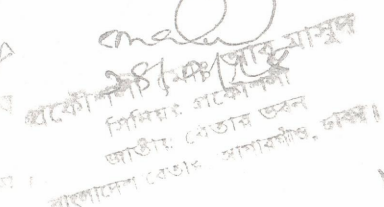 প্রকৌশলী মোঃ আবু মাসুদ
সিনিয়র প্রকৌশলী
জাতীয় বেতার ভবন
বাংলাদেশ বেতার, আগারগাঁও, ঢাকা।